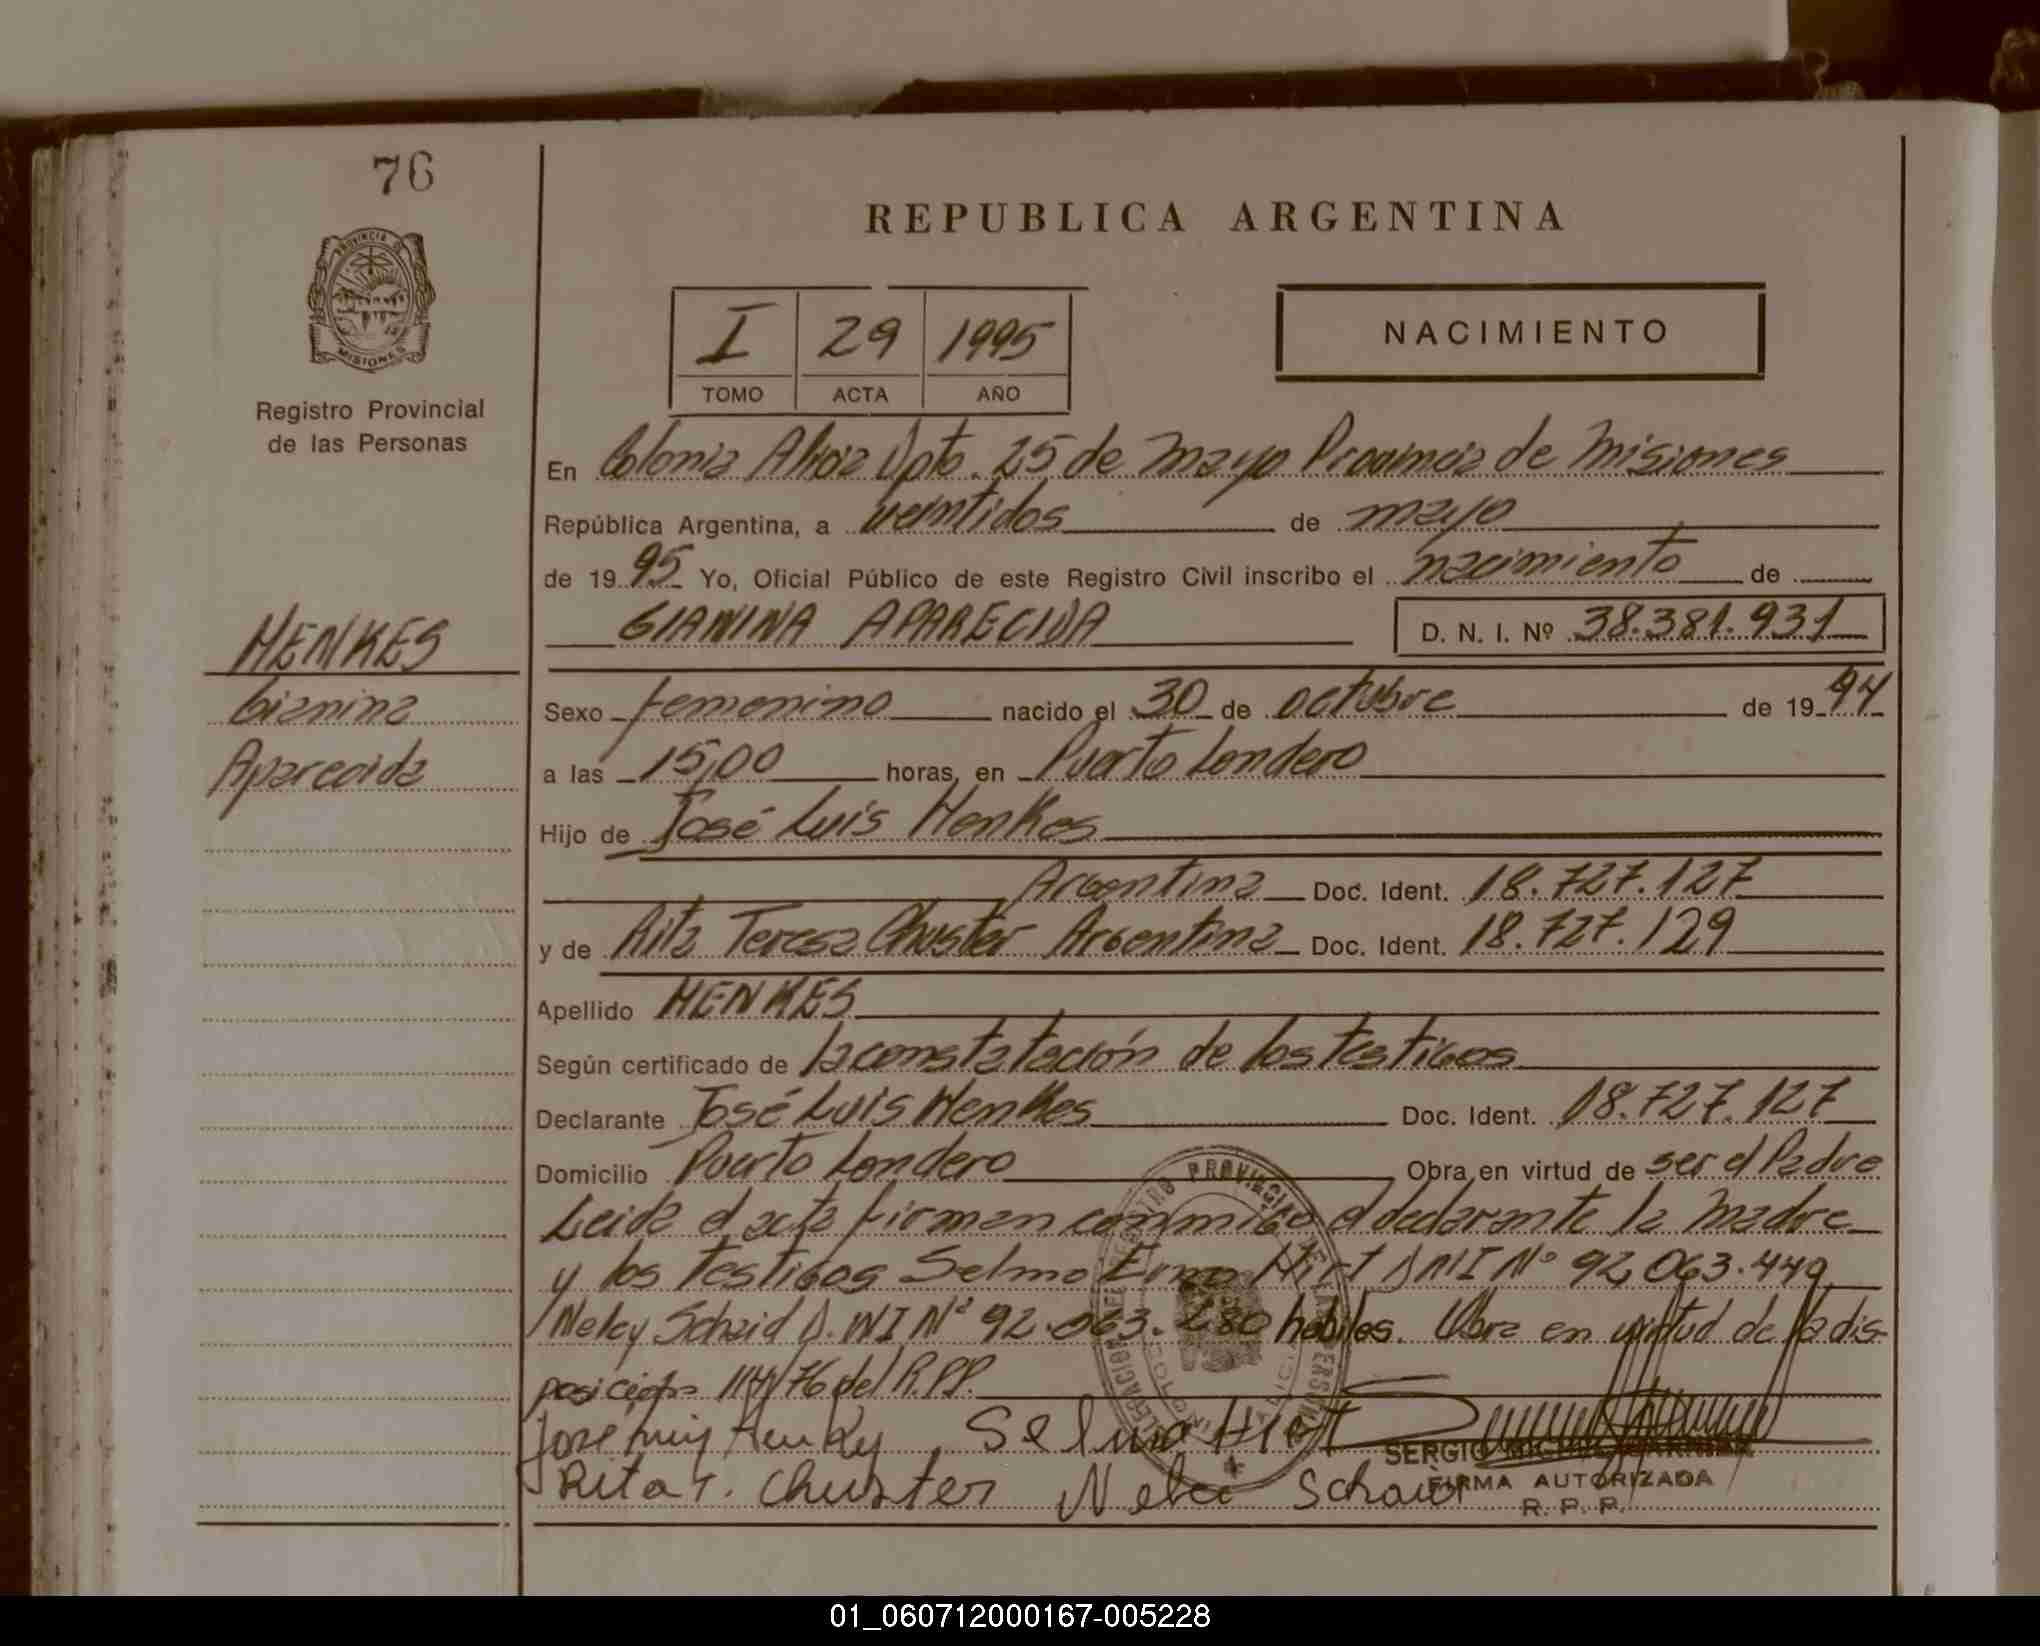 76
REPUBLICA ARGENTINA
PROVINCIA D
MISIONES
Registro Provincial
de las Personas
I 29 1995
TOMO ACTA AÑO
NACIMIENTO
En Colonia Alicia Dpto. 25 de mayo Provincia de Misiones
República Argentina, a veintidos de mayo
de 1995 Yo, Oficial Público de este Registro Civil inscribo el nacimiento de
GIANINA APARECIDA D. N. I. Nº 38.381.931
HENKES
Gianina
Aparecida
Sexo femenino nacido el 30 de octubre de 1994
a las 15,00 horas, en Puerto Londero
Hijo de José Luis Henkes
Argentina Doc. Ident. 18.727.127
y de Rita Teresa Chuster Argentina Doc. Ident. 18.727.129
Apellido HENKES
Según certificado de la constatación de los testigos
Declarante José Luis Henkes Doc. Ident. 18.727.127
Domicilio Puerto Londero Obra en virtud de ser el Padre
Leida el acta firman conmigo el declarante la madre
y los testigos Selmo Hirt DNI Nº 92.063.449
Neley Schaid D.NI Nº 92.063.280 habiles. Obra en virtud de la dis-
posición 114/76 del R.PP.
Selmo Hirt
Rita T. Chuster
SERGIO
FIRMA AUTORIZADA
R. P. P.
01_060712000167-005228